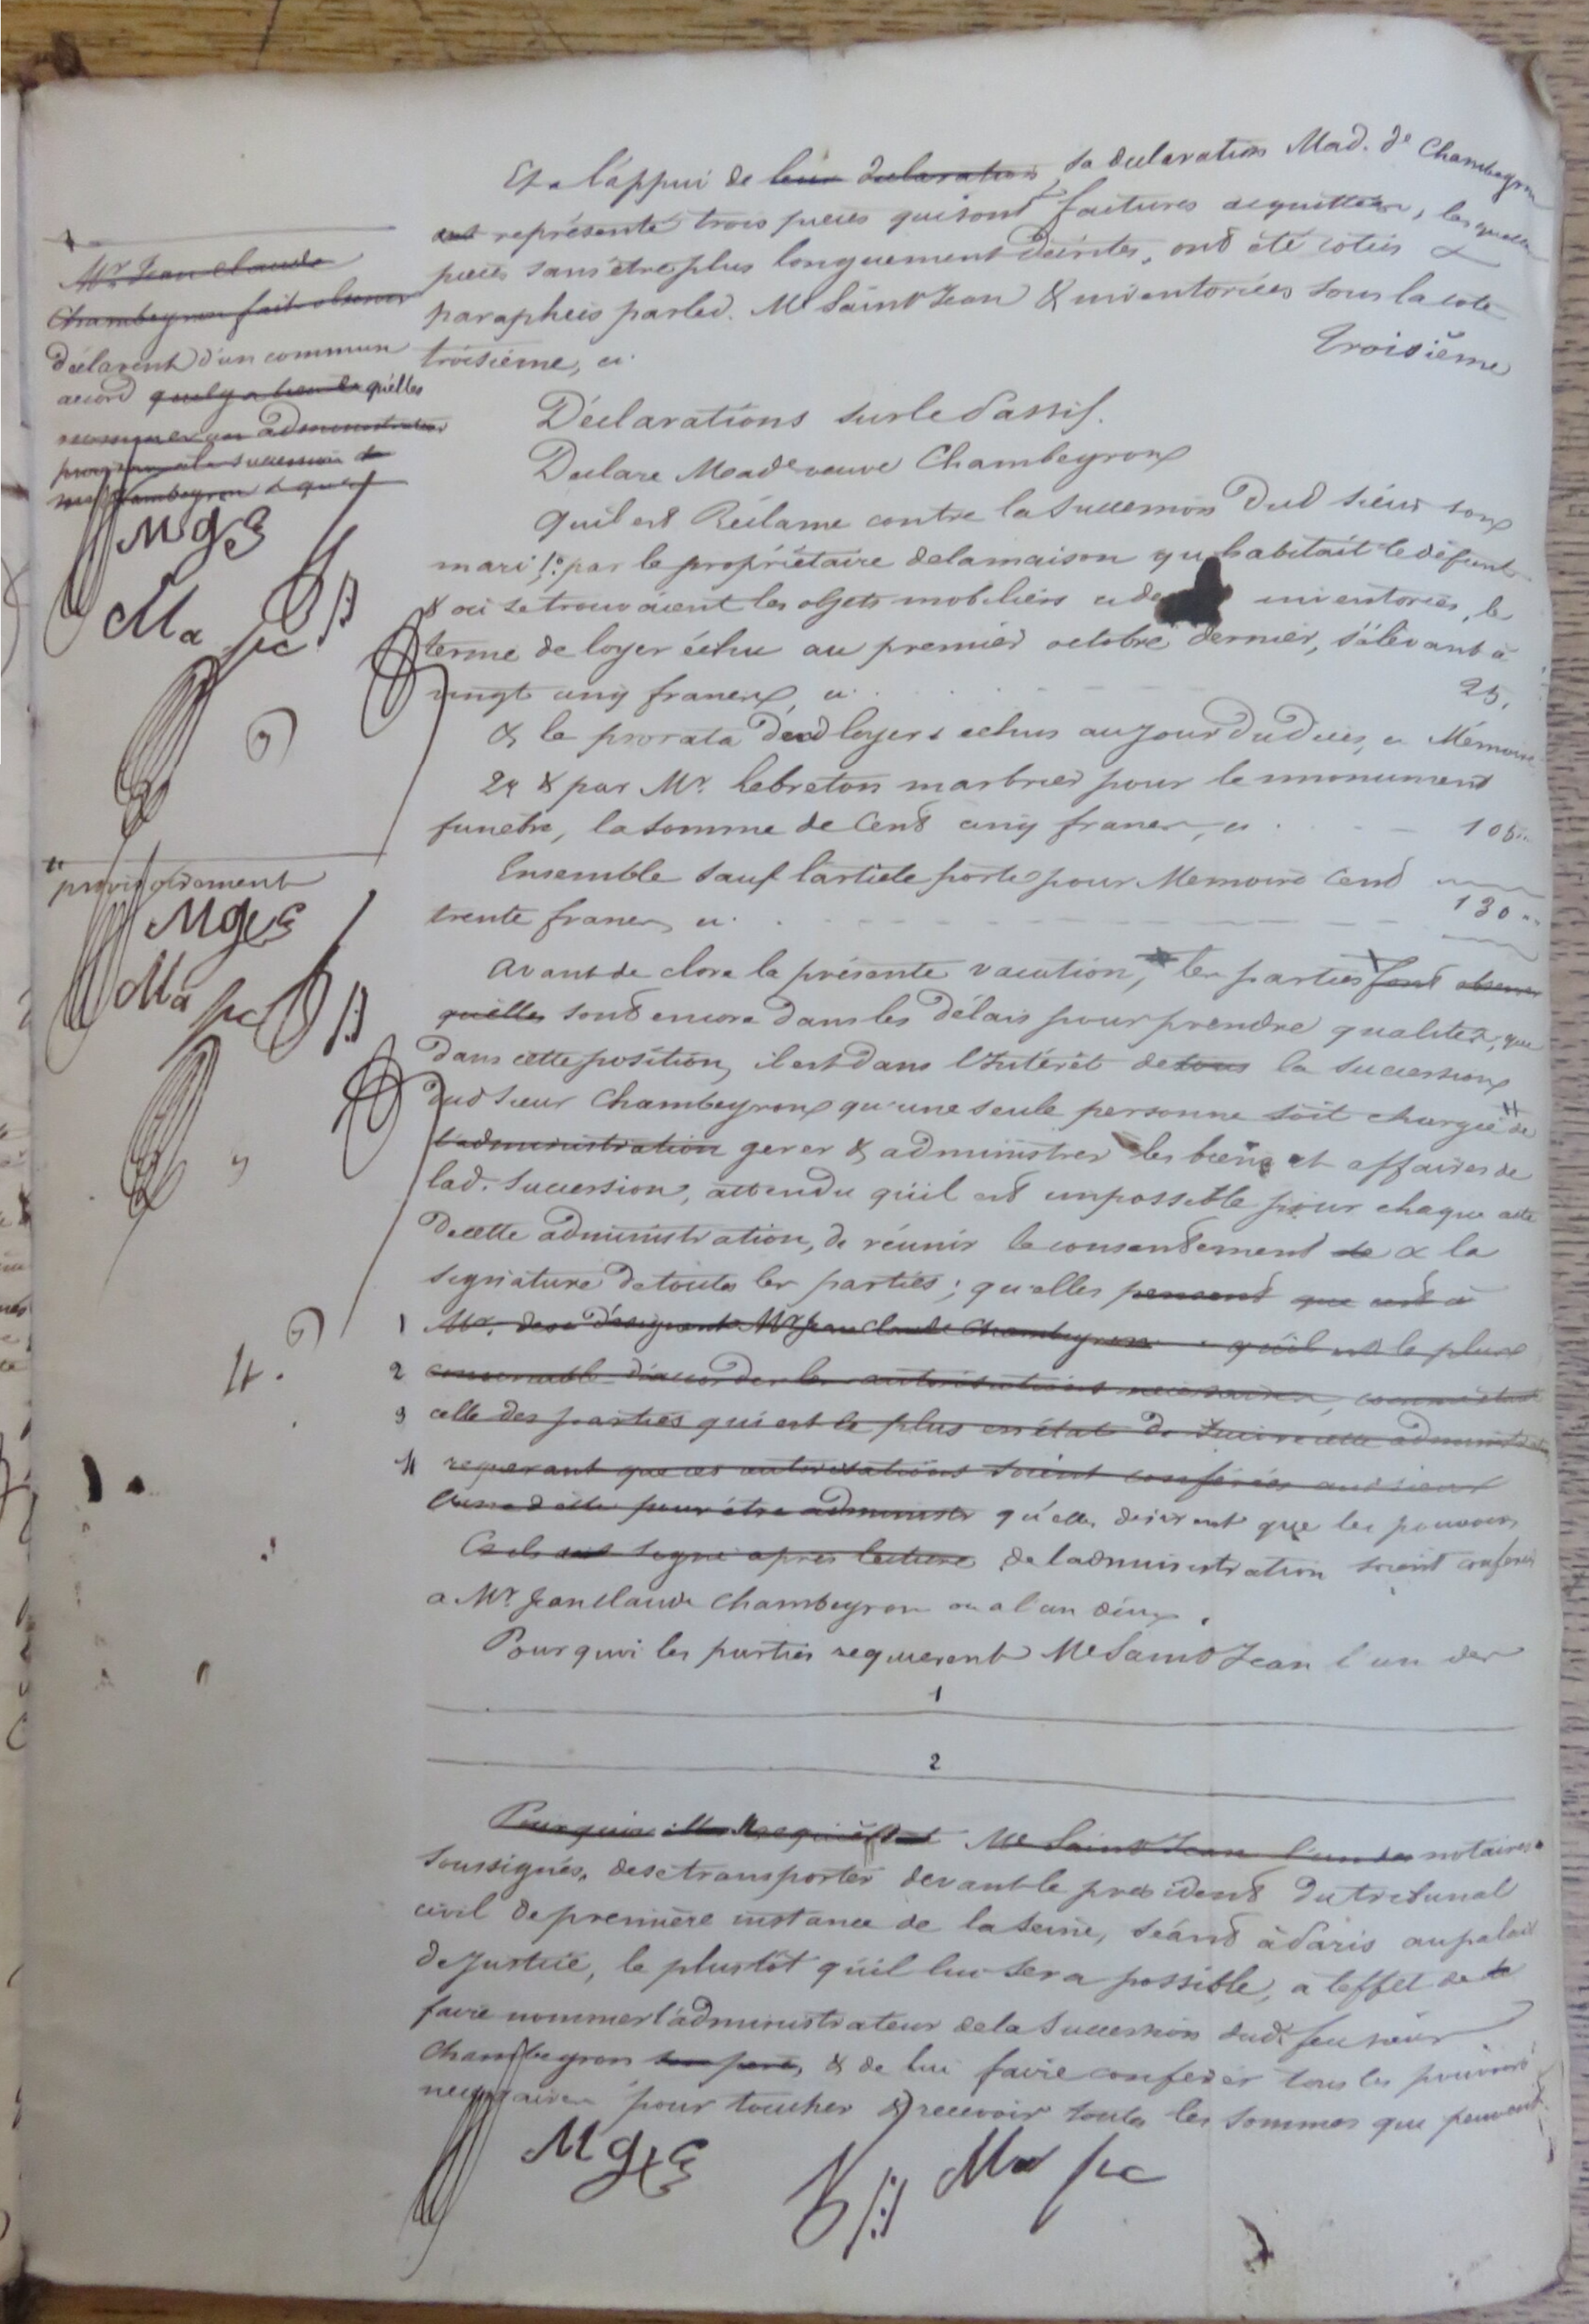 Et a l'appui de leur declaration sa declaration Mad. de Chambeyron
ont représenté trois pieces qui sont factures acquittées, lesquelles
pieces sans être plus longuement décrites, ont été cotées &
paraphées par led. Me Saint Jean & inventoriées sous la cote
troisième, ci
Troisième
Déclarations sur le Passif.
Declare Made veuve Chambeyron
Qu'il est Réclamé contre la succession Dud. sieur son
mari 1o. par le propriétaire de la maison qu habitait le défunt
& où se trouvaient les objets mobiliers inventoriés, le
terme de loyer échu au premier octobre dernier, s'élevant à
vingt cinq francs, ci 25.
& le prorata desd loyers echus au jour Du Decès, ci Mémoire
2o & par Mr. Lebreton marbrier pour le monument
funebre, la somme de Cent cinq francs, ci 105 "
Ensemble sauf l'article porté pour Memoire Cent
trente francs, ci 130 "
Avant de clore la présente vacation, les parties font observer
qu'elles sont encore dans les Délais pour prendre qualité, que
Dans cette position, il est dans l'Intérêt de tous la succession
dud sieur Chambeyron qu'une seule personne soit chargée de
l'administration gerer & administrer les biens et affaires de
lad. Succession, attendu qu'il est impossible pour chaque acte
De cette administration, de réunir le consentement de & la
signature De toutes les parties ; qu'elles pensent que c'est à
1 Mr. Jean Claude Chambeyron qu'il est le plus
2 convenable d'accorder les autorisations nécessaires, comme étant
3 celle des parties qui est le plus en état De suivre cette administration
4 requerant que ces autorisations soient conférées aud sieur
pour être administr qu'elles desirent que les pouvoirs
Et ils ont signé après lecture de l'administration soient conferés
a Mr Jean Claude Chambeyron ou a l'un d'eux.
Pourquoi les parties requierent Me Saint Jean l'un des
1
2
Pourquoi elles requièrent Me Saint Jean l'un des notaires
soussignés, de se transporter devant le président Du tribunal
civil De première instance de la Seine, séant à Paris au palais
De Justice, le plustôt qu'il lui sera possible, a l'effet de
faire nommer l'administrateur de la Succession dud. feu sieur
Chambeyron son père, & de lui faire conférer tous les pouvoirs
necessaires pour toucher & recevoir toutes les sommes que peuvent
Mr Jean Claude
Chambeyron fait observer
Déclarent D'un commun
accord qu'il y a lieu de qu'elles
nommer un administrateur
à la succession de
Chambeyron & que
provisoirement